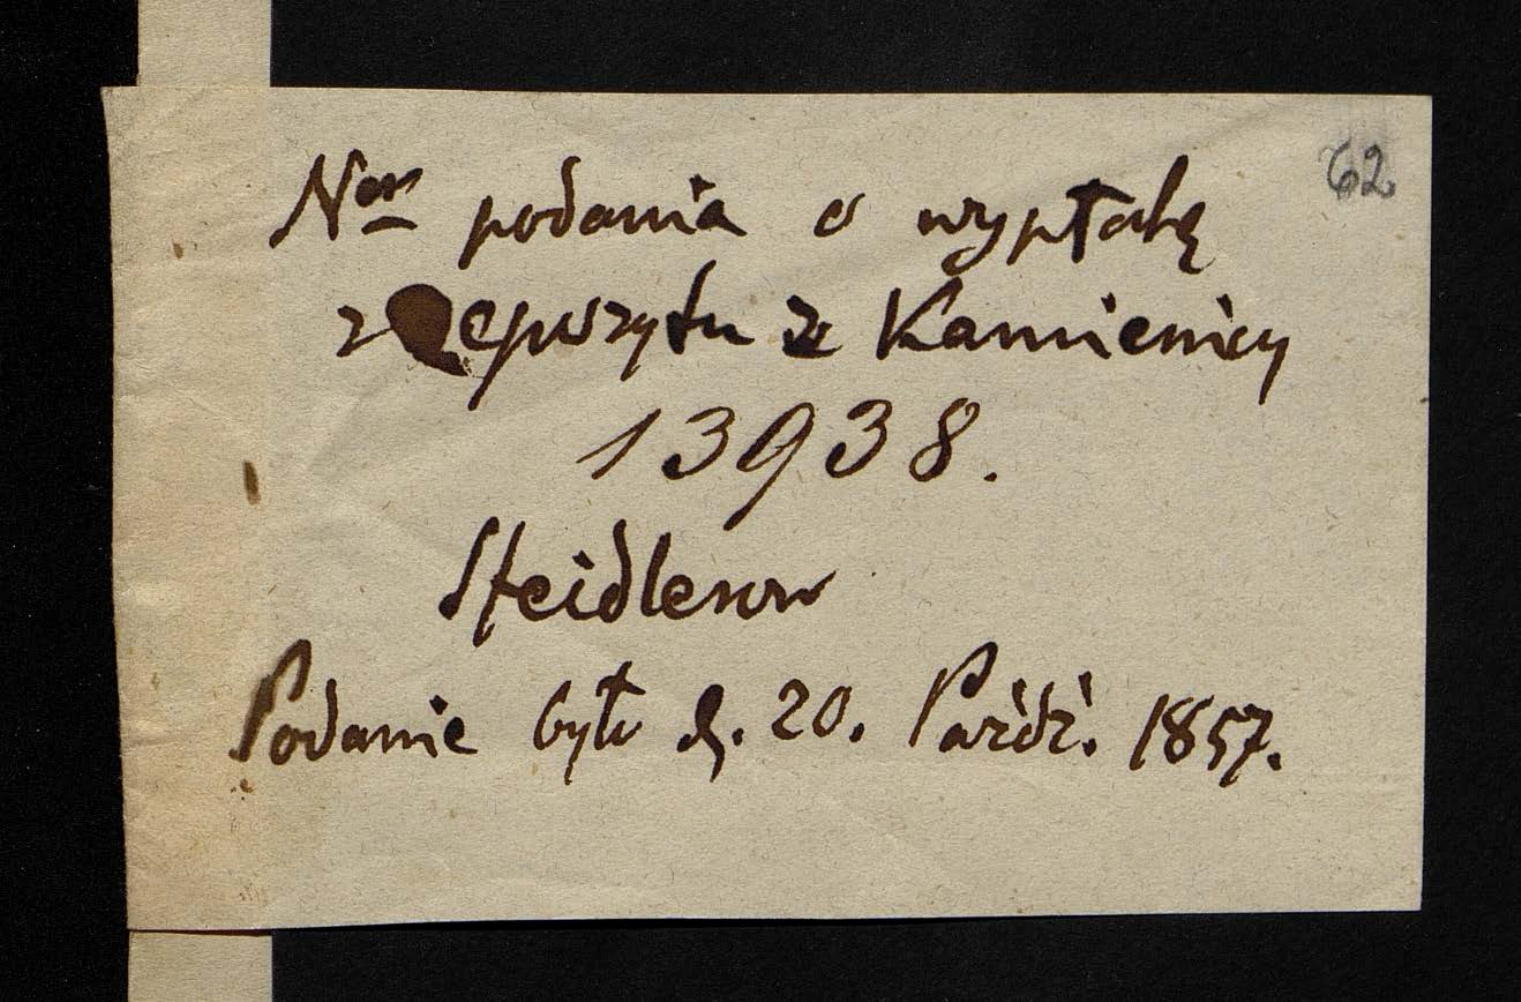 62
Nor podania o wypłatę
z Depozytu z Kamienicy
13938.
Steidlerow
Podanie było d. 20. Paźdź. 1857.